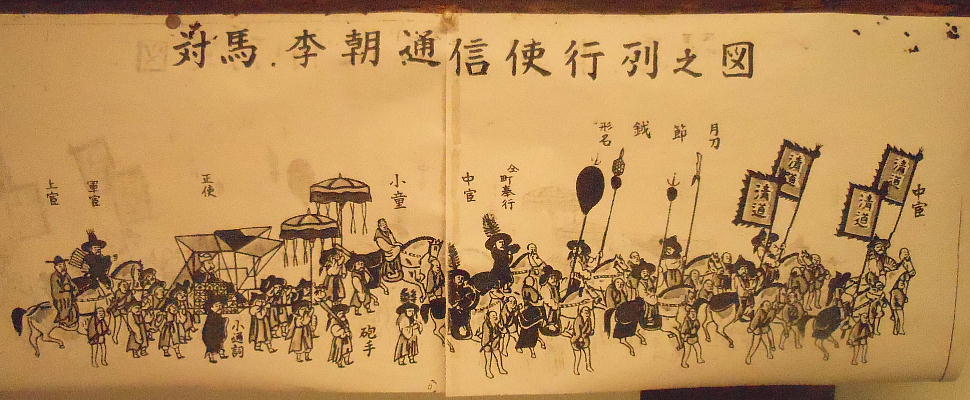 対馬李朝通信使行列之図
上官
軍官
正使
小童
中官
仝町奉行
形名
鉞
節
月刀
清道
清道
清道
清道
中官
小通詞
砲手